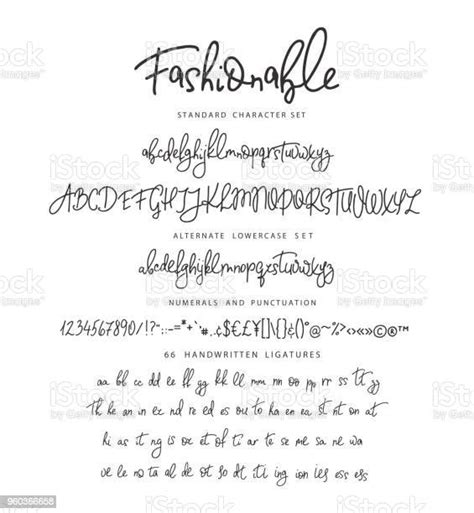 Fashionable
STANDARD CHARACTER SET
abcdefghijklmnopqrstuvwxyz
ABCDEFGHIJKLMNOPQRSTUVWXYZ
ALTERNATE LOWERCASE SET
abcdefghijklmnopqrstuvwxyz
NUMERALS AND PUNCTUATION
1234567890/!?
66 HANDWRITTEN LIGATURES
aa bb cc dd ee ff gg kk ll mm nn oo pp rr ss tt zz
Th he an in er nd re ed es ou to ha en ea st nt on at
hi as it ng is or et of ti ar te se me sa ne wa
ve le no ta al de ot so dt ll eg ing ion ies ess es
iStock
by Getty Images
960366658